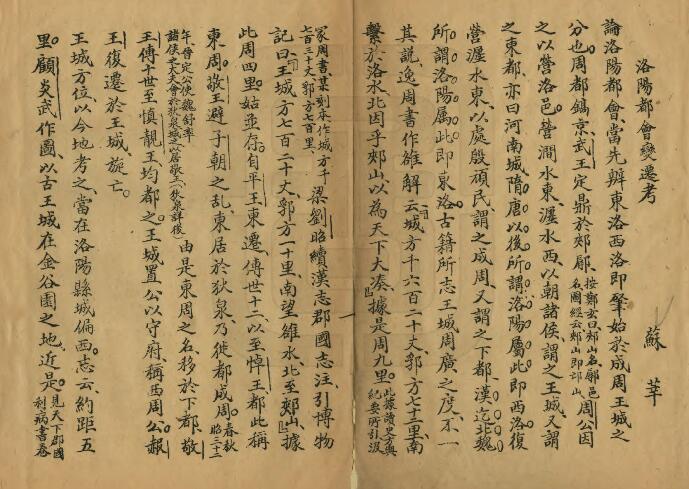 洛陽都會變遷考
蘇莘
論洛陽都會、當先辨東洛西洛、即肇始於成周王城之
分也。周都鎬京、武王定鼎於郟鄏、按鄭玄曰郟山名鄏邑名圖經云郟山即邙山、周公因
之以營洛邑。營澗水東、瀍水西、以朝諸侯、謂之王城、又謂
之東都、亦曰河南城、隋唐以後所謂洛陽屬此、即西洛。復
營瀍水東、以處殷頑民、謂之成周、又謂之下都、漢迄北魏
所謂洛陽屬此、即東洛。古籍所志王城周廣之度、不一
其說、逸周書作雒解云、「城方千六百二十丈、郛方七十二里、南
繫於洛水、北因乎郟山、以為天下大湊。」據是周九里。此據讀史方輿紀要所引汲
冢周書某刻本作城方千七百二十丈郛方七百里、梁劉昭續漢志郡國志注、引博物
記曰、「王城方七百二十丈、郛方一十里、南望雒水、北至郟山、」據
此周四里。姑並存。自平王東遷、傳世十二、以至悼王都此、稱
東周、敬王避子朝之乱、東居於狄泉、乃徙都成周。春秋昭三十二
年、晉定公使魏舒率諸侯之大夫會於狄泉城之以居敬王（狄泉詳後）由是東周之名、移於下都、敬
王傳十世至慎靚王、均都之。王城置公以守府、稱西周公。赧
王復遷於王城、旋亡。
王城方位、以今地考之、當在洛陽縣城偏西。志云、約距五
里。顧炎武作圖、以古王城在金谷園之地、近是。見天下郡國利病書卷